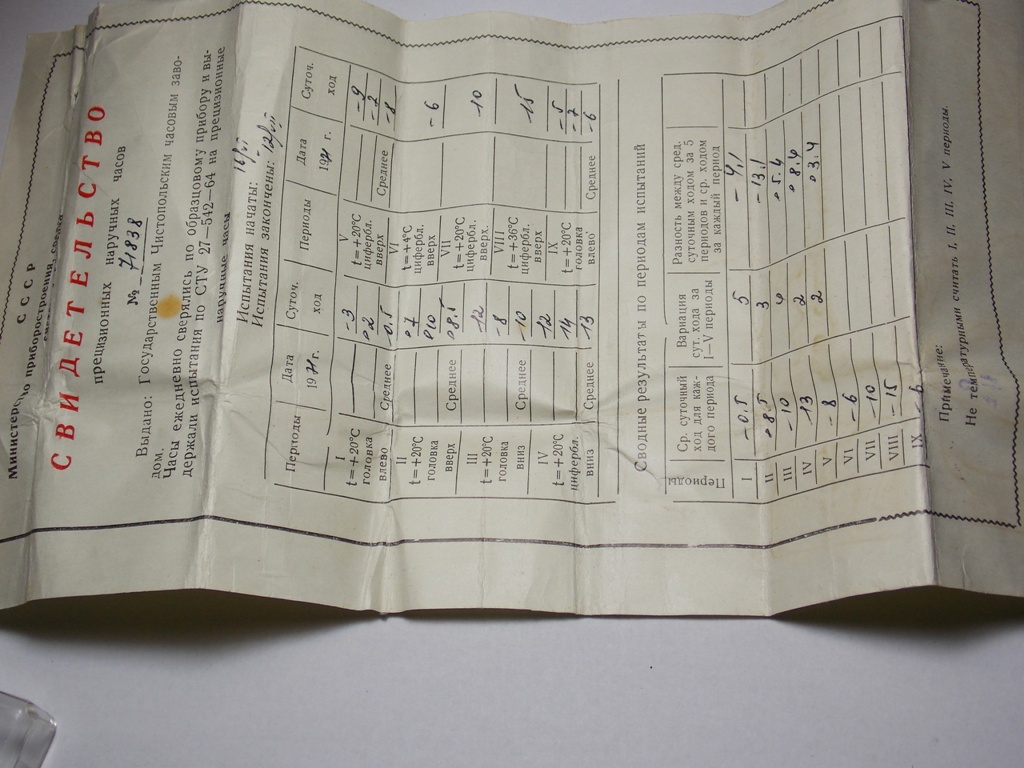 С С С Р
Министерство приборостроения, средств
СВИДЕТЕЛЬСТВО
прецизионных наручных часов
№ 71838
Выдано: Государственным Чистопольским часовым заво-
дом.
Часы ежедневно сверялись по образцовому прибору и вы-
держали испытания по СТУ 27—542—64 на прецизионные
наручные часы
Испытания начаты:
Испытания закончены:
Периоды Дата 1971 г. Суточ. ход Периоды Дата 1971 г. Суточ. ход
I t=+20°C головка влево -3 Среднее -0.5
V t=+20°C циферbл. вверх -9 -7 Среднее -8
II t=+20°C головка вверх Среднее
VI t=+4°C циферbл. вверх -6
III t=+20°C головка вниз -12 -8 Среднее -10
VII t=+20°C циферbл. вверх. -10
IV t=+20°C циферbл. вниз 12 14 Среднее -13
VIII t=+36°C циферbл. вверх -15
IX t=+20°C головка влево -5 -7 Среднее -6
Сводные результаты по периодам испытаний
Периоды Ср. суточный ход для каж- дого периода Вариация сут. хода за I—V периоды Разность между сред. суточным ходом за 5 периодов и ср. ходом за каждый период
I -0.5 5
II 3 -13.1
III -10
IV -13 2
V -8 2
VI -6
VII -10
VIII -15
IX -6
Примечание:
Не температурными считать I, II, III, IV, V периоды.